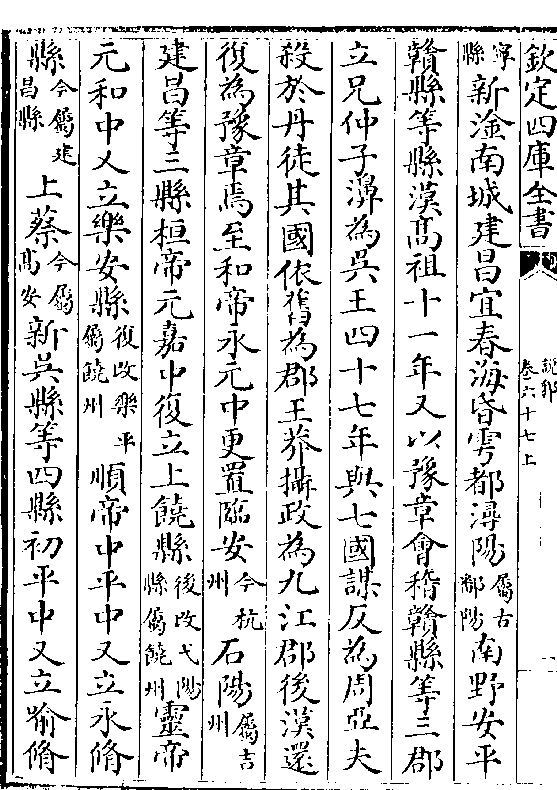 欽定四庫全書
說郛
卷六十七上
寧縣新淦南城建昌宜春海昏雩都潯陽屬古鄱陽南野安平
贛縣等縣漢髙祖十一年又以豫章㑹稽贛縣等三郡
立兄仲子濞為吳王四十七年與七國謀反為周亞夫
殺於丹徒其國依舊為郡王莽攝政為九江郡後漢還
復為豫章焉至和帝永元中更置臨安今杭州石陽屬吉州
建昌等三縣桓帝元嘉中復立上饒縣後改弋陽縣屬饒州靈帝
元和中又立樂安縣復改樂平屬饒州順帝中平中又立永脩
縣今屬建昌縣上蔡今屬髙安新吳縣等四縣初平中又立喻脩